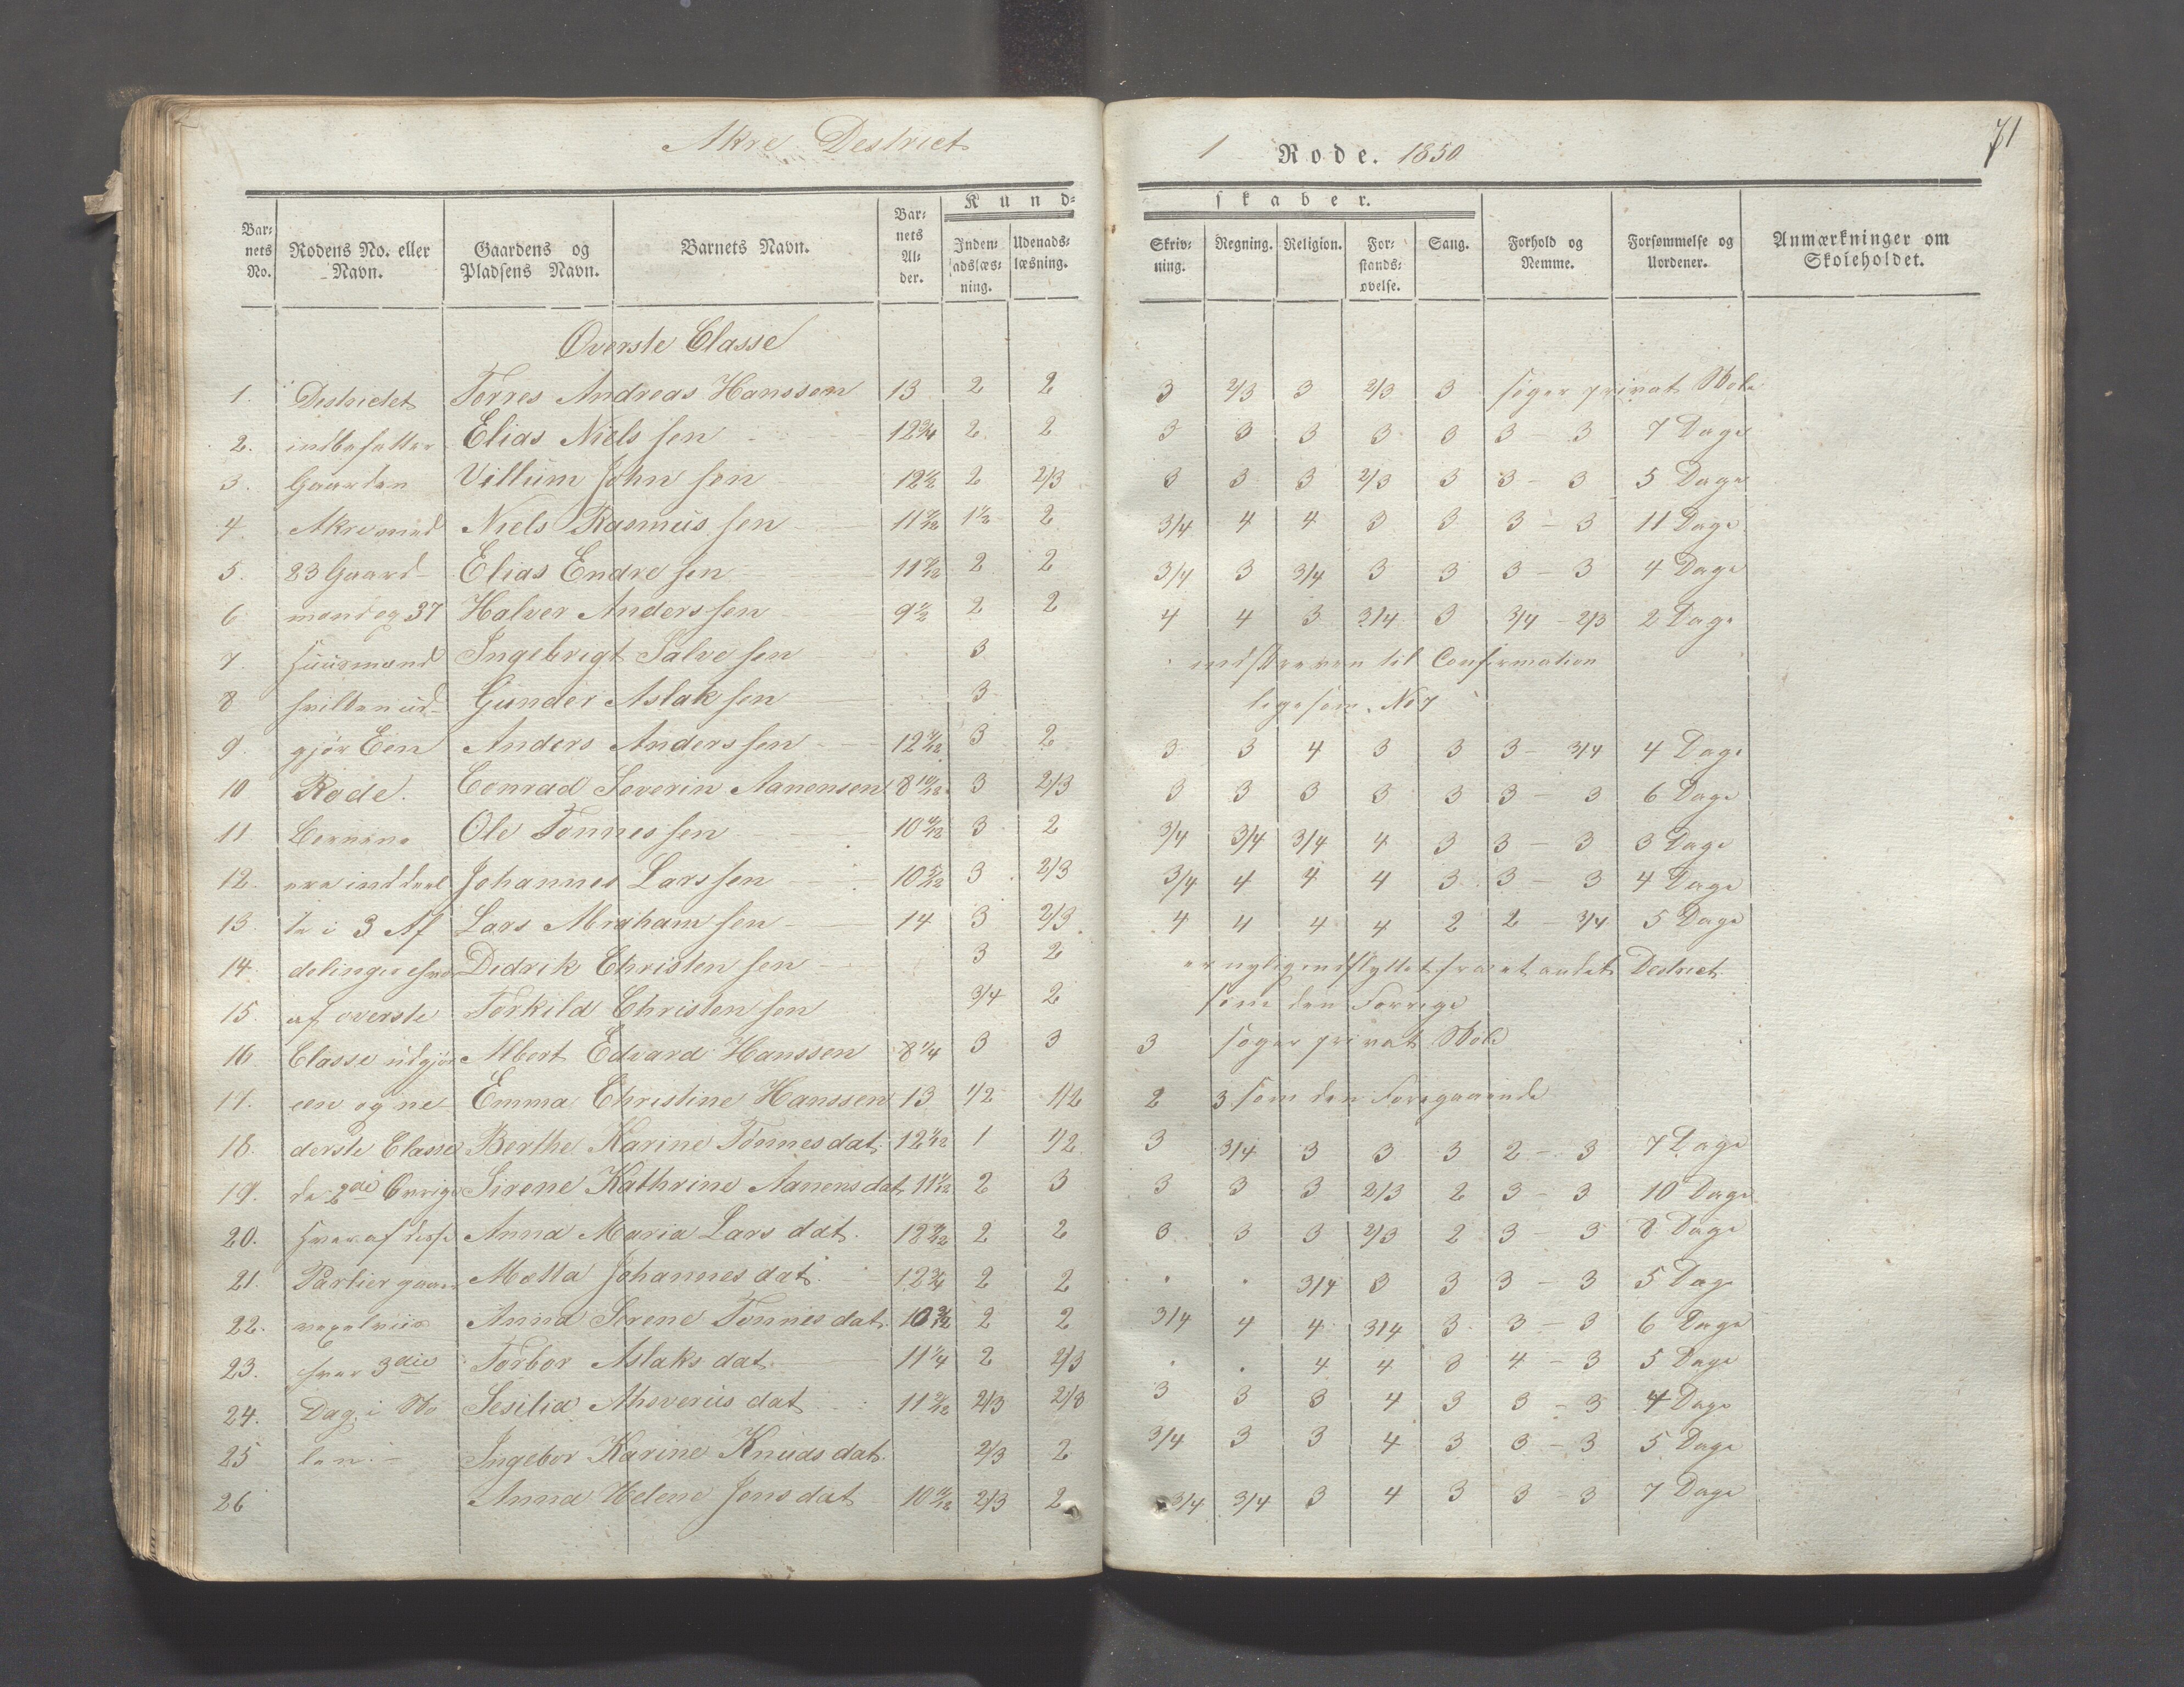 Akre Destrict
1 Rode. 1850
71
Barnets No. Rodens No. eller Navn. Gaardens og Pladsens Navn. Barnets Navn. Barnets Alder. Kundskaber. Indenadslæsning. Udenadslæsning. Skrivning. Regning. Religion. Forstandsøvelse. Sang. Forhold og Nemme. Forsømmelse og Uordener. Anmærkninger om Skoleholdet.
Øverste Classe
1. Destrictet Torres Andreas Hanssen 13 2 2 3 2/3 3 2/3 3 søger privat Skole
2. indbefatter Elias Nielssen 12 3/4 2 2 3 3 3 3 3 3 - 3 7 Dage
3. Gaarden Villum Johnsen 12 1/2 2 2/3 3 3 3 2/3 3 3 - 3 5 Dage
4. Akre med Niels Rasmussen 1 1/2 2 3/4 4 4 3 3 3 - 3 11 Dage
5. 23 Gaard- Elias Endresen 2 2 3/4 3 3/4 3 3 3 - 3 4 Dage
6 mænd og 37 Halver Anderssen 9 1/2 2 2 4 4 3 3/4 3 3/4 - 2/3 2 Dage
7. Huusmænd Ingebrigt Salvesen 3 indskreven til Confirmation
8 hvilken ud- Gunder Aslaksen 3 ligesom No 7
9. gjør Een Anders Anderssen 3 2 3 3 4 3 3 3 - 3/4 4 Dage
10 Rode. Conrad Severin Aanensen 8 10/12 3 2/3 3 3 3 3 3 3 - 3 6 Dage
11 Børnene Ole Tønnessen 3 2 3/4 3/4 3/4 4 3 3 - 3 3 Dage
12. ere inddeel Johannes Larssen 3 2/3 3/4 4 4 4 3 3 - 3 4 Dage
13. te i 3 Af Lars Abrahamsen 14 3 2/3 4 4 4 4 2 2 - 3/4 5 Dage
14. delinger Didrik Christensen 3 2 er nylig indflyttet fra et andet Destrict
15. af øverste Torkild Christensen 3/4 2 som den Forrige
16. Classe udgjør Albert Edvard Hanssen 8 1/4 3 3 3 søger privat Skole
17. een og ne- Emma Christine Hanssen 13 1/2 1/2 2 3 som den Foregaaende
18. derste Classe Berthe Karine Tønnesdat. 1 1/2 3 3/4 3 3 3 2 - 3 7 Dage
19. de 2de Øvrige Sirene Kathrine Aanensdat 2 3 3 3 3 2/3 2 3 - 3 10 Dage
20. Hver af disse Anna Maria Larsdat. 2 2 3 3 3 2/3 2 3 - 3 8 Dage
21. Partier gaaer Mætta Johannesdat. 12 3/4 2 2 . . 3/4 3 3 3 - 3 5 Dage
22. vexelviis Anna Serene Tønnesdat. 2 2 3/4 4 4 3/4 3 3 - 3 6 Dage
23. hver 3die Torbor Aslaksdat. 11 1/4 2 2/3 . . 4 4 3 4 - 3 5 Dage
24. Dag i Sko Sesilia Ahsverusdat 2/3 2/3 3 3 3 4 3 3 - 3 4 Dage
25 len. - Ingebor Karine Knudsdat. 2/3 2 3/4 3 3 4 3 3 - 3 5 Dage
26 Anna Helene Jensdat 2/3 2 3/4 3/4 3 4 3 3 - 3 7 Dage